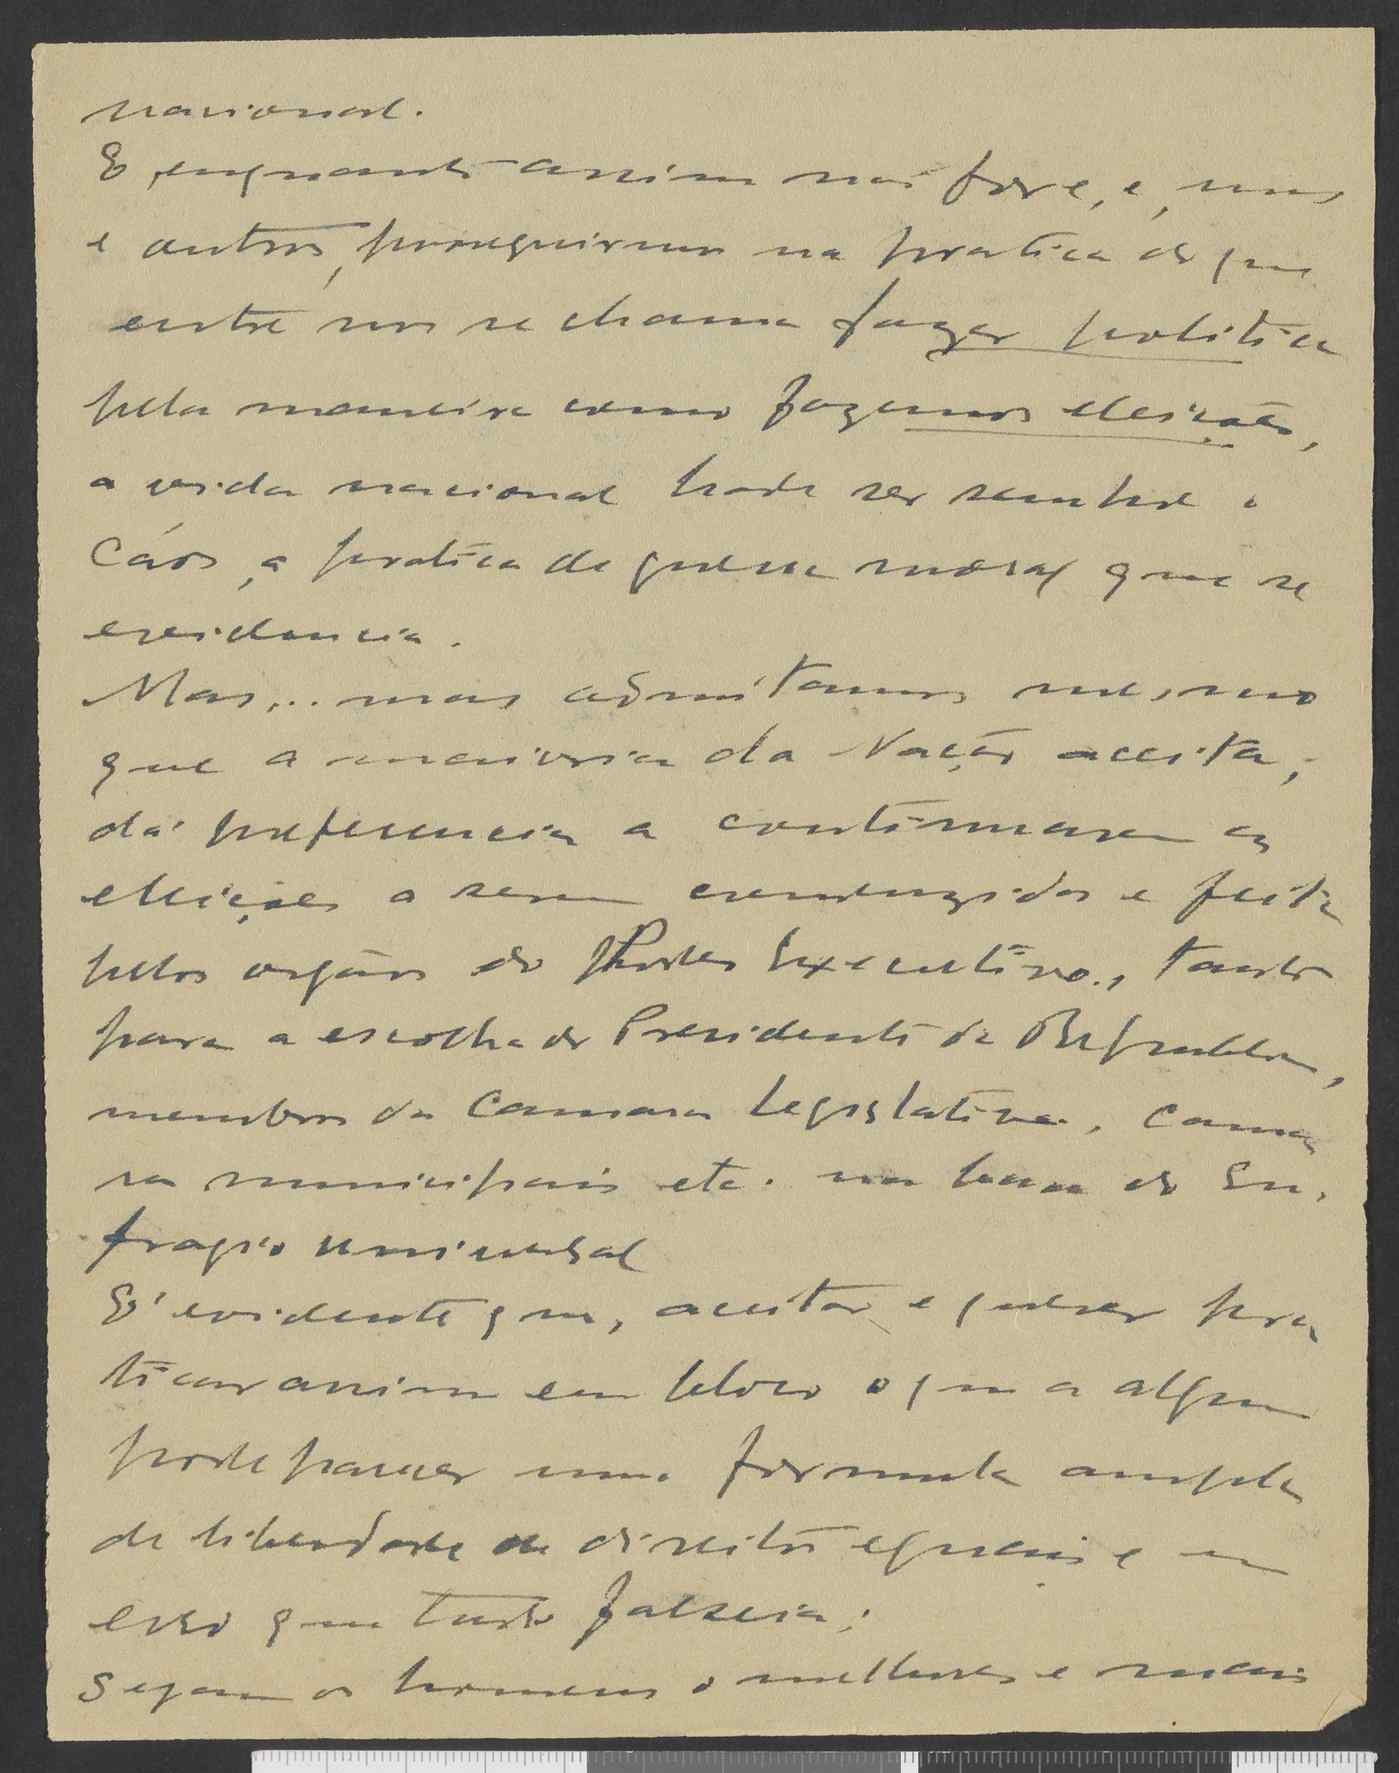 nacional.
E, enquanto assim não fôre, e, uns
e outros, proseguirmos na pratica do que
entre nós se chama fazer politica
pela maneira como fazemos eleições,
a vida nacional hade ser sempre o
Cáos, a pratica da guerra moral que se
evidencia.
Mas,.. mas admitamos mesmo
que a maioria da Nação aceita,
dá preferencia a continuarem as
eleições a serem conduzidas e feitas
pelos orgãos do Poder Executivo., tanto
para a escolha do Presidente da Republica,
membros da Camara Legislativa, Cama
ras municipais etc. na base do Su,
fragio universal
E' evidente que, aceitar e querer pra
ticar assim em bloco o que a alguns
pode parecer uma formula ampla
de liberdade de direitos eguais e um
erro que tudo falseia;
Sejam os homens o melhores e mais